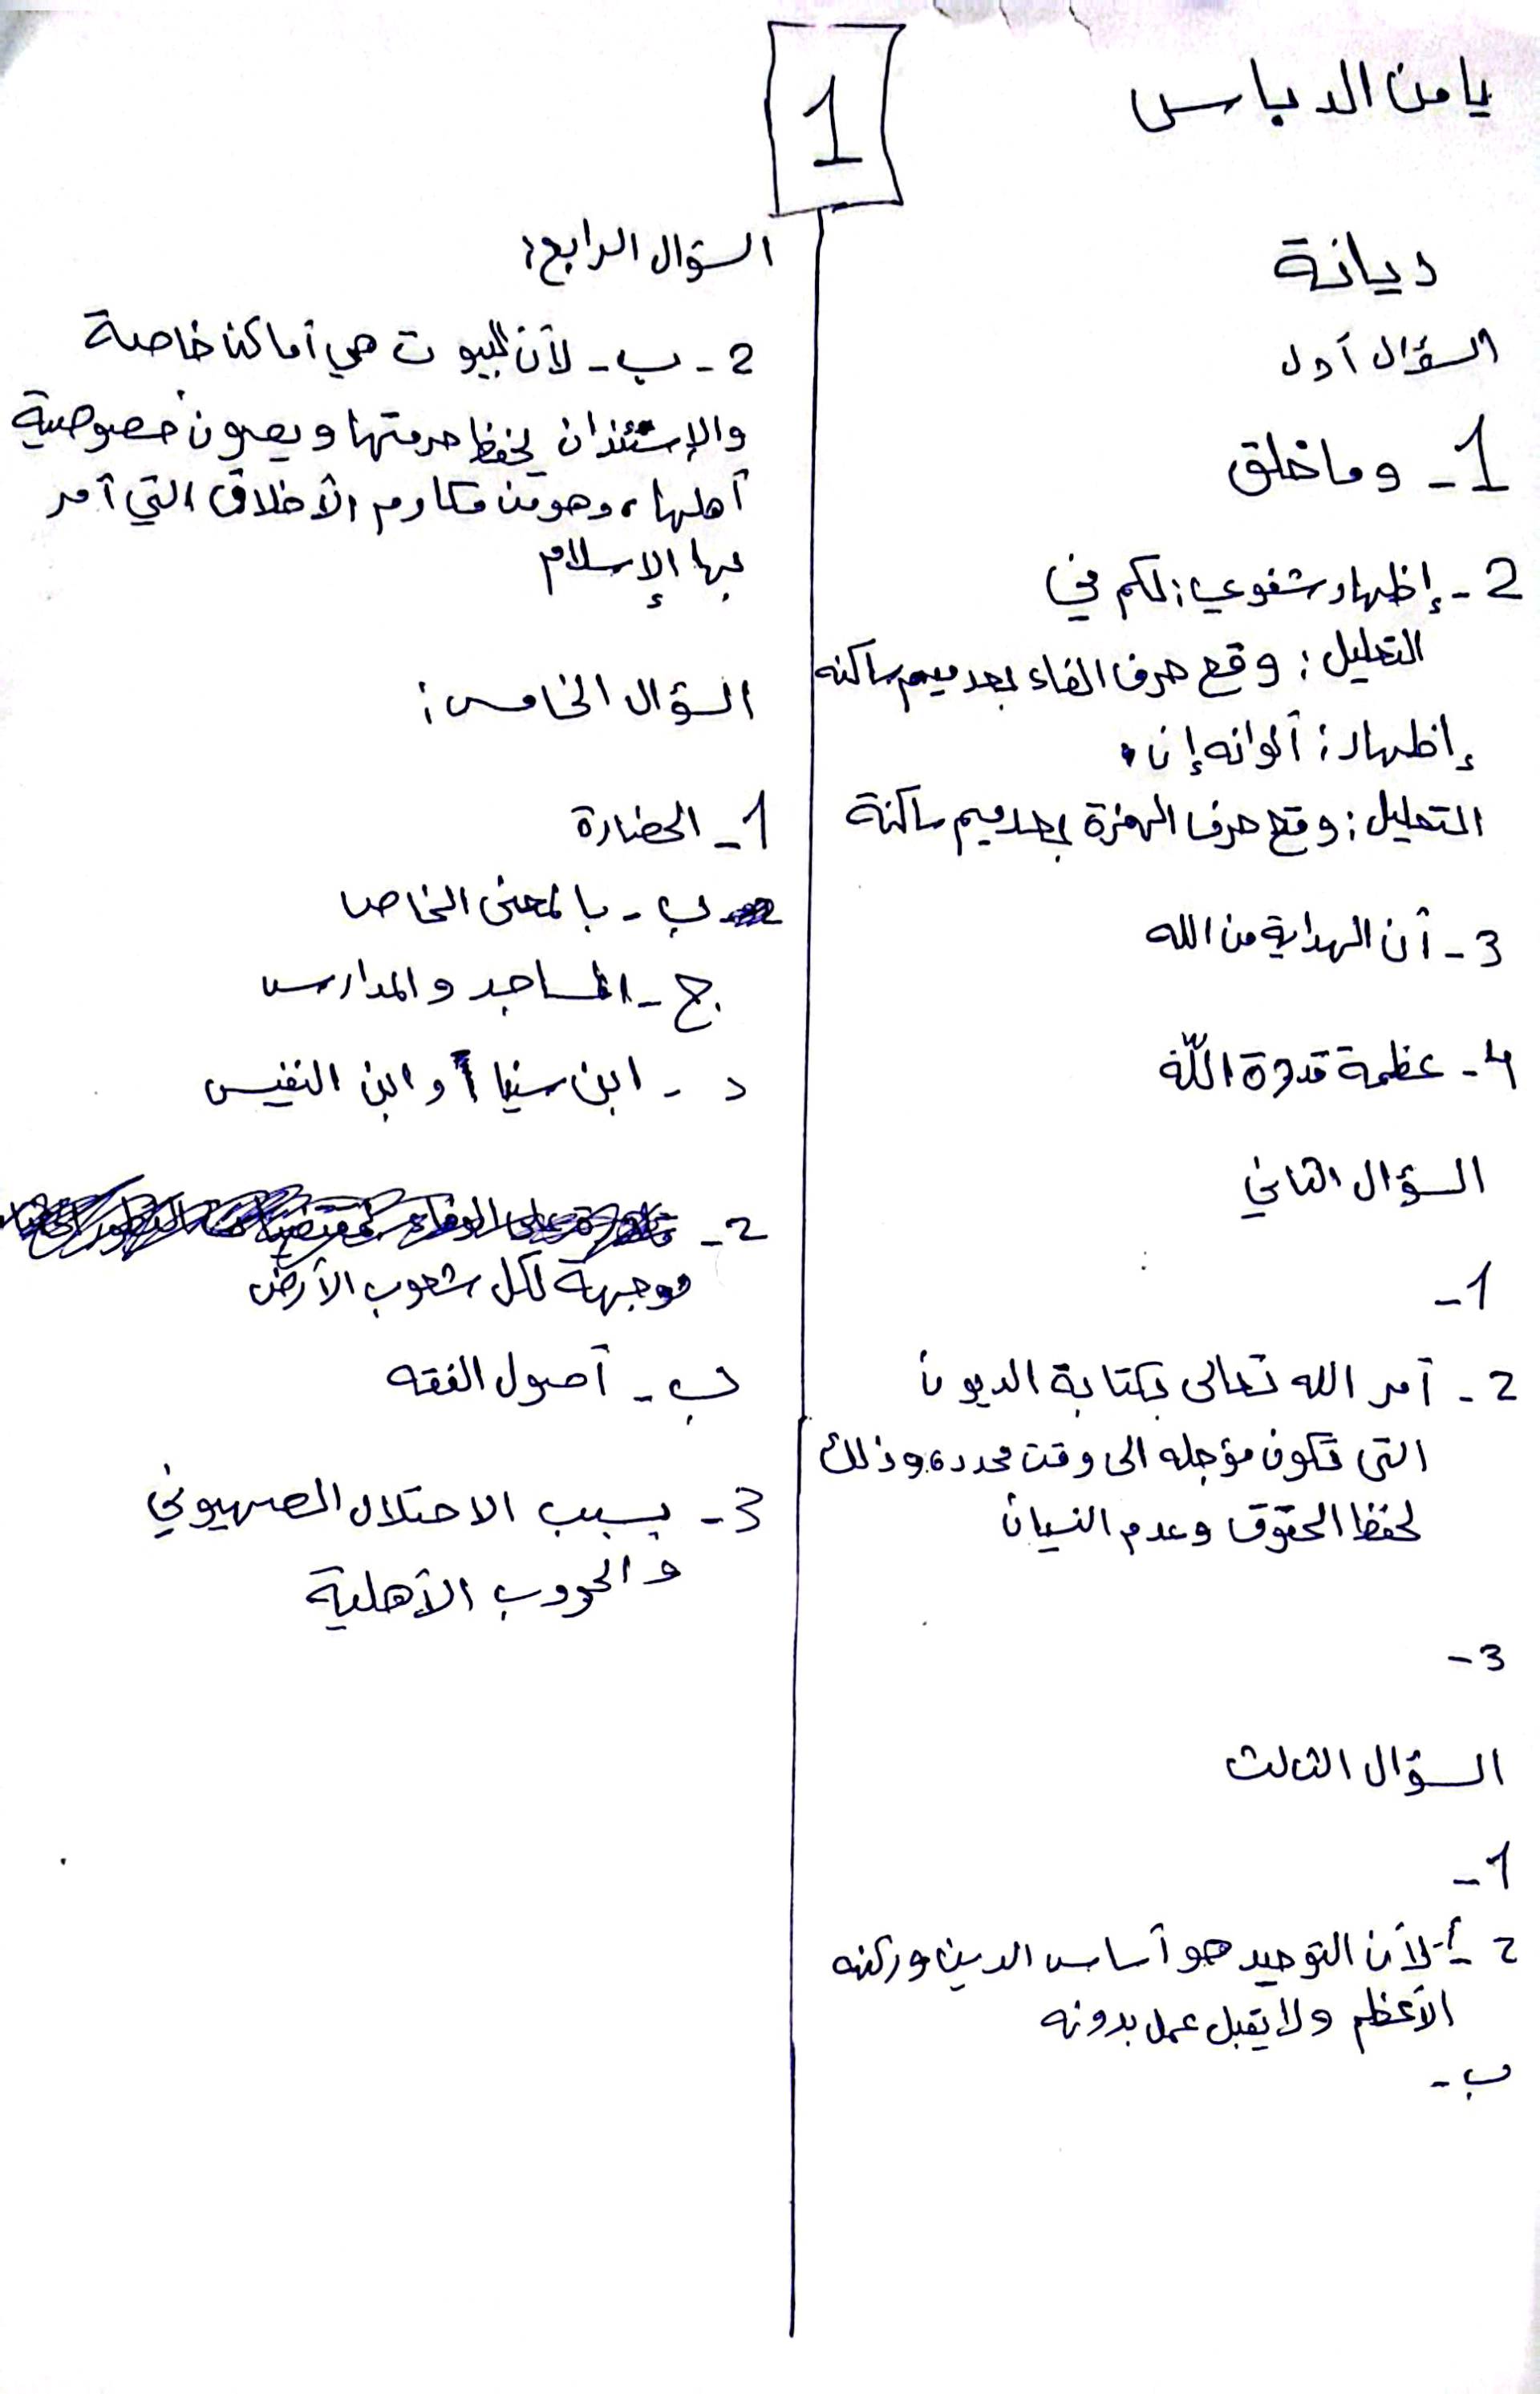 يامن الدباس
1
ديانة
السؤال أول
1- وما خلق
2- إظهار شفوي: لكم في
التعليل: وقع حرف الفاء بعد ميم ساكنه
إظهار: ألوانه إن
التعليل: وقع حرف الهمزة بعد ميم ساكنة
3- أن الهداية من الله
4- عظمة قدرة اللّه
السؤال الثاني
1-
2- أمر الله تعالى بكتابة الديون
التي تكون مؤجله الى وقت محدد، وذلك
لحفظ الحقوق وعدم النسيان
3-
السؤال الثالث
1-
2 أ- لأن التوحيد هو أساس الدين وركنه
الأعظم ولا يقبل عمل بدونه
ب-
السؤال الرابع:
2- ب- لأن البيوت هي أماكن خاصة
والإستئذان يحفظ حرمتها ويصون خصوصية
أهلها، وهو من مكارم الأخلاق التي أمر
بها الإسلام
السؤال الخامس:
1- الحضارة
ب- بالمعنى الخاص
ج- المساجد والمدارس
د- ابن سنيا وابن النفيس
2-
موجهة لكل شعوب الأرض
ب- أصول الفقه
3- بسبب الاحتلال الصهيوني
والحروب الأهلية